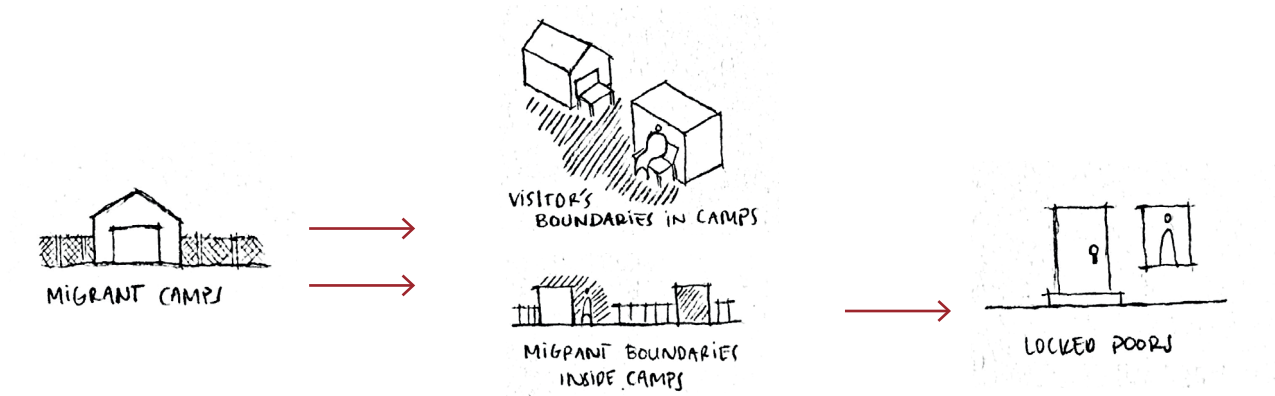 MIGRANT CAMPS
VISITOR'S
BOUNDARIES IN CAMPS
MIGRANT BOUNDARIES
INSIDE CAMPS
LOCKED DOORS